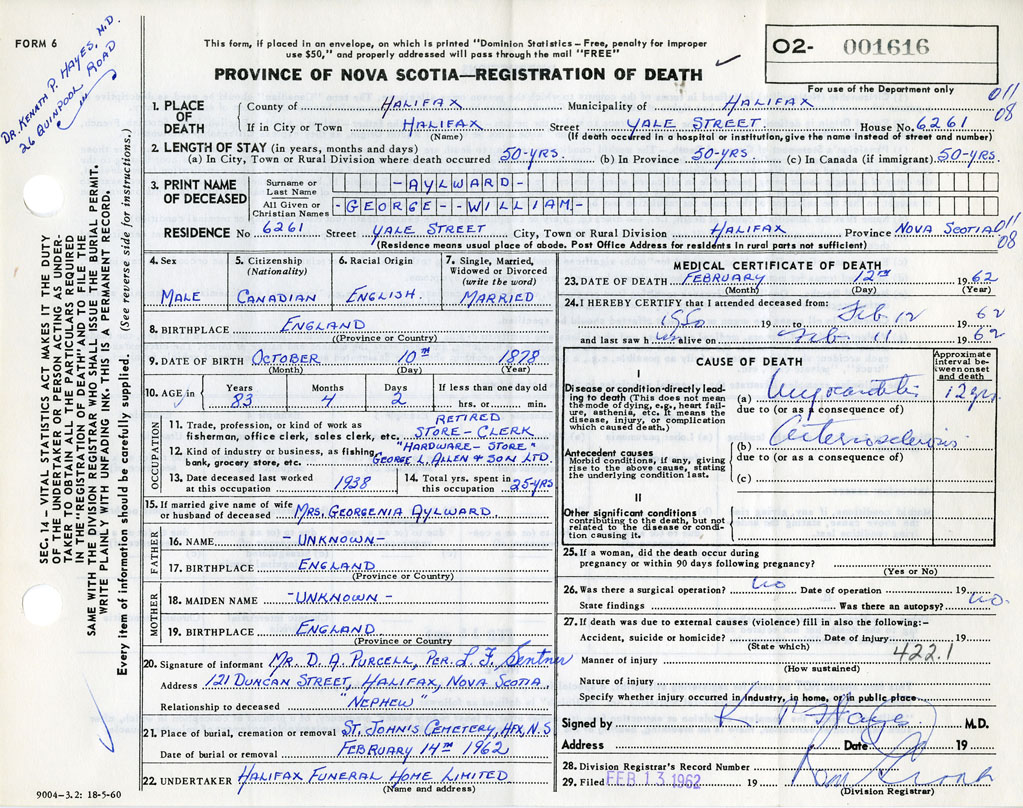 FORM 6
DR. KENATH P. HAYES, M.D.
26 QUINPOOL ROAD
This form, if placed in an envelope, on which is printed "Dominion Statistics – Free, penalty for improper
use $50," and properly addressed will pass through the mail "FREE"
PROVINCE OF NOVA SCOTIA—REGISTRATION OF DEATH
02- 001616
For use of the Department only
011
08
1. PLACE OF DEATH
County of HALIFAX Municipality of HALIFAX
If in City or Town HALIFAX Street YALE STREET House No. 6261
(Name) (If death occurred in a hospital or institution, give the name instead of street and number)
2. LENGTH OF STAY (in years, months and days)
(a) In City, Town or Rural Division where death occurred 50-YRS. (b) In Province 50-YRS. (c) In Canada (if immigrant) 50-YRS.
3. PRINT NAME OF DECEASED
Surname or Last Name -AYLWARD-
All Given or Christian Names -GEORGE--WILLIAM-
RESIDENCE No 6261 Street YALE STREET City, Town or Rural Division HALIFAX Province NOVA SCOTIA 011
08
(Residence means usual place of abode. Post Office Address for residents in rural parts not sufficient)
4. Sex MALE
5. Citizenship (Nationality) CANADIAN
6. Racial Origin ENGLISH.
7. Single, Married, Widowed or Divorced (write the word) MARRIED
8. BIRTHPLACE ENGLAND
(Province or Country)
9. DATE OF BIRTH OCTOBER 10TH 1878
(Month) (Day) (Year)
10. AGE in Years 83 Months 4 Days 2 If less than one day old hrs. or min.
OCCUPATION
11. Trade, profession, or kind of work as fisherman, office clerk, sales clerk, etc. RETIRED STORE-CLERK
12. Kind of industry or business, as fishing, bank, grocery store, etc. "HARDWARE-STORE" GEORGE L. ALLEN & SON LTD.
13. Date deceased last worked at this occupation 1938
14. Total yrs. spent in this occupation 25-YRS
15. If married give name of wife or husband of deceased MRS. GEORGENIA AYLWARD
FATHER
16. NAME -UNKNOWN-
17. BIRTHPLACE ENGLAND
(Province or Country)
MOTHER
18. MAIDEN NAME -UNKNOWN-
19. BIRTHPLACE ENGLAND
(Province or Country
20. Signature of informant MR. D. A. PURCELL, PER. L. F. Sentner
Address 121 DUNCAN STREET, HALIFAX, NOVA SCOTIA.
Relationship to deceased "NEPHEW"
21. Place of burial, cremation or removal ST. JOHN'S CEMETERY, HFX, N.S
Date of burial or removal FEBRUARY 14TH 1962
22. UNDERTAKER HALIFAX FUNERAL HOME LIMITED
(Name and address)
9004—3.2: 18-5-60
MEDICAL CERTIFICATE OF DEATH
23. DATE OF DEATH FEBRUARY 12TH 1962
(Month) (Day) (Year)
24. I HEREBY CERTIFY that I attended deceased from:
1950 19 to Feb 12 1962
and last saw h im alive on Feb 11 1962
CAUSE OF DEATH
Approximate interval between onset and death
I
Disease or condition directly leading to death (This does not mean the mode of dying, e.g., heart failure, asthenia, etc. It means the disease, injury, or complication which caused death.)
(a) Myocarditis 12 yrs
due to (or as a consequence of)
Antecedent causes
Morbid conditions, if any, giving rise to the above cause, stating the underlying condition last.
(b) Arteriosclerosis
due to (or as a consequence of)
(c)
II
Other significant conditions
contributing to the death, but not related to the disease or condition causing it.
25. If a woman, did the death occur during
pregnancy or within 90 days following pregnancy?
(Yes or No)
26. Was there a surgical operation? no Date of operation 19
State findings Was there an autopsy? no.
27. If death was due to external causes (violence) fill in also the following:–
Accident, suicide or homicide? Date of injury 19
(State which) 422.1
Manner of injury
(How sustained)
Nature of injury
Specify whether injury occurred in industry, in home, or in public place
Signed by K P Hayes M.D.
Address Date 19
28. Division Registrar's Record Number
29. Filed FEB 13 1962 19
(Division Registrar)
SEC. 14 – VITAL STATISTICS ACT MAKES IT THE DUTY
OF THE UNDERTAKER OR PERSON ACTING AS UNDER-
TAKER TO OBTAIN ALL THE PARTICULARS REQUIRED
IN THE "REGISTRATION OF DEATH" AND TO FILE THE
SAME WITH THE DIVISION REGISTRAR WHO SHALL ISSUE THE BURIAL PERMIT.
WRITE PLAINLY WITH UNFADING INK. THIS IS A PERMANENT RECORD.
Every item of information should be carefully supplied. (See reverse side for instructions.)